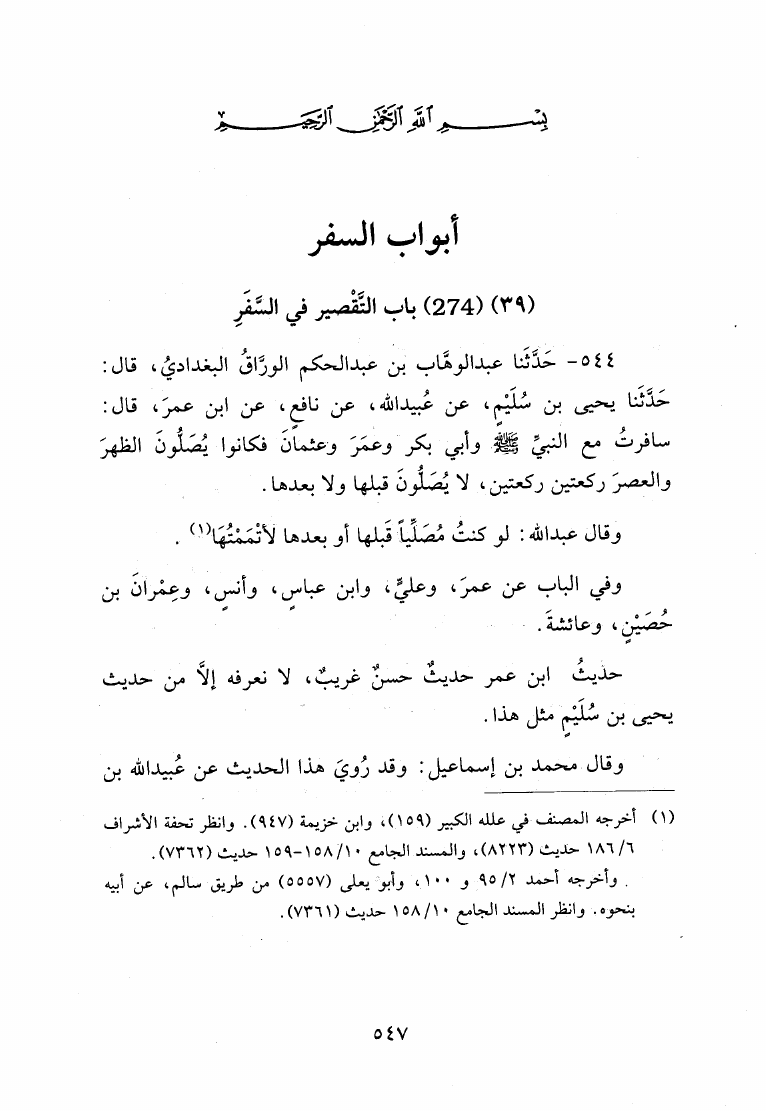 بِسْمِ اللَّهِ الرَّحْمَٰنِ الرَّحِيمِ
أبواب السفر
(٣٩) (274) باب التَّقْصير في السَّفَرِ
٥٤٤- حَدَّثَنا عبدالوهَّاب بن عبدالحكم الورَّاقُ البغداديُ، قال:
حَدَّثَنا يحيى بن سُلَيْمٍ، عن عُبيدالله، عن نافعٍ، عن ابن عمرَ، قال:
سافرتُ مع النبيِّ ﷺ وأبي بكر وعمَرَ وعثمانَ فكانوا يُصَلُّونَ الظهرَ
والعصرَ ركعتين ركعتين، لا يُصَلُّونَ قبلها ولا بعدها.
وقال عبدالله: لو كنتُ مُصَلِّياً قَبلها أو بعدها لأتْمَمْتُهَا(١).
وفي الباب عن عمرَ، وعليٍّ، وابن عباسٍ، وأنسٍ، وعِمْرانَ بن
حُصَيْنٍ، وعائشةَ.
حديثُ ابن عمر حديثٌ حسنٌ غريبٌ، لا نعرفه إلاَّ من حديث
يحيى بن سُلَيْمٍ مثل هذا.
وقال محمد بن إسماعيل: وقد رُويَ هذا الحديث عن عُبيدالله بن
(١) أخرجه المصنف في علله الكبير (١٥٩)، وابن خزيمة (٩٤٧). وانظر تحفة الأشراف
٦/ ١٨٦ حديث (٨٢٢٣)، والمسند الجامع ١٠/ ١٥٨-١٥٩ حديث (٧٣٦٢).
وأخرجه أحمد ٢/ ٩٥ و ١٠٠، وأبو يعلى (٥٥٥٧) من طريق سالم، عن أبيه
بنحوه. وانظر المسند الجامع ١٠/ ١٥٨ حديث (٧٣٦١).
٥٤٧